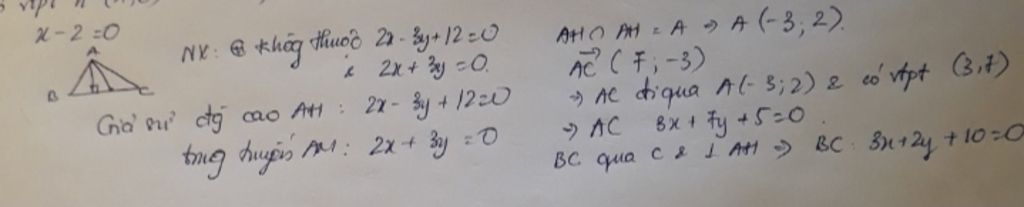 vtpt n
x - 2 = 0
A
B
C
NX: C không thuộc 2x - 3y + 12 = 0
& 2x + 3y = 0.
Giả sử đg cao AH: 2x - 3y + 12 = 0
trung tuyến AM: 2x + 3y = 0
AH ∩ AM = A => A(-3; 2).
AC (7; -3)
=> AC đi qua A(-3; 2) & có vtpt (3, 7)
=> AC 3x + 7y + 5 = 0.
BC qua C & ⊥ AH => BC: 3x + 2y + 10 = 0